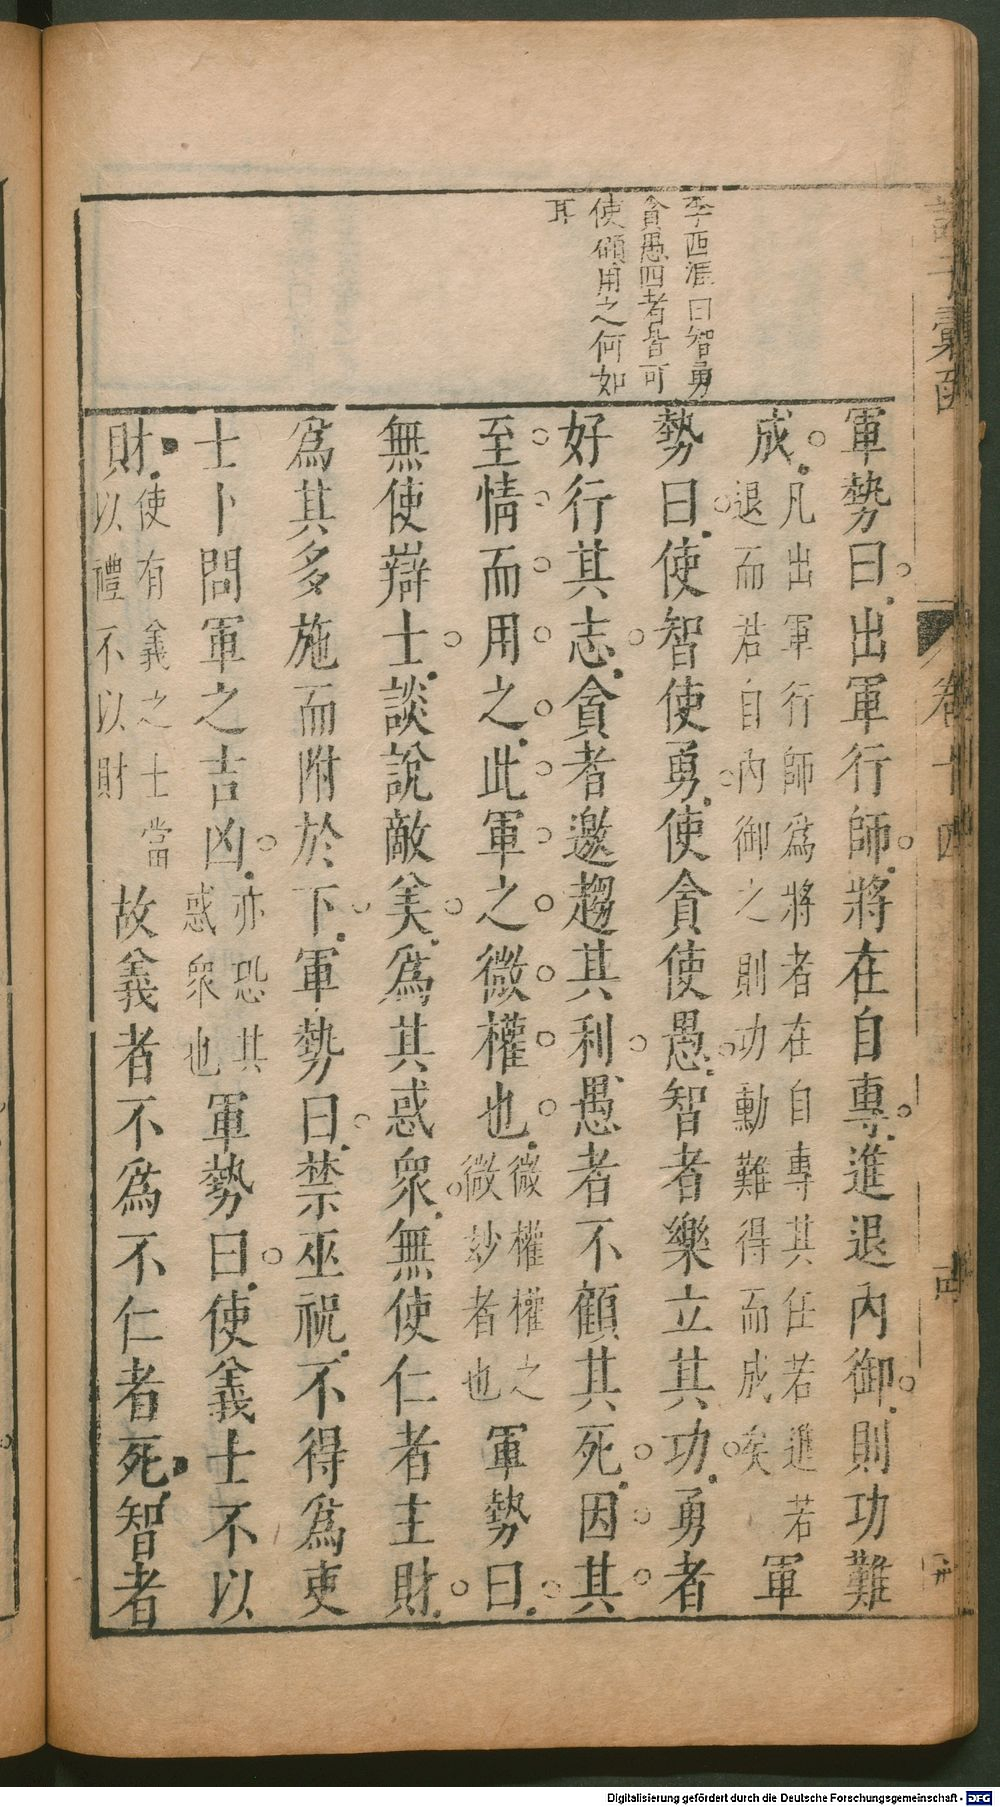 李西涯曰智勇
貪愚四者皆可
使顧用之何如
耳
軍勢曰出軍行師將在自專進退內御則功難
成凡出軍行師爲將者在自專其任若進若
退而君自內御之則功勳難得而成矣軍
勢曰使智使勇使貪使愚智者樂立其功勇者
好行其志貪者邀趨其利愚者不顧其死因其
至情而用之此軍之微權也微權權之
微妙者也軍勢曰
無使辯士談說敵美爲其惑衆無使仁者主財
爲其多施而附於下軍勢曰禁巫祝不得爲吏
士卜問軍之吉凶亦恐其
惑衆也軍勢曰使義士不以
財使有義之士當
以禮不以財故義者不爲不仁者死智者
卷十四
Digitalisierung gefördert durch die Deutsche Forschungsgemeinschaft - DFG